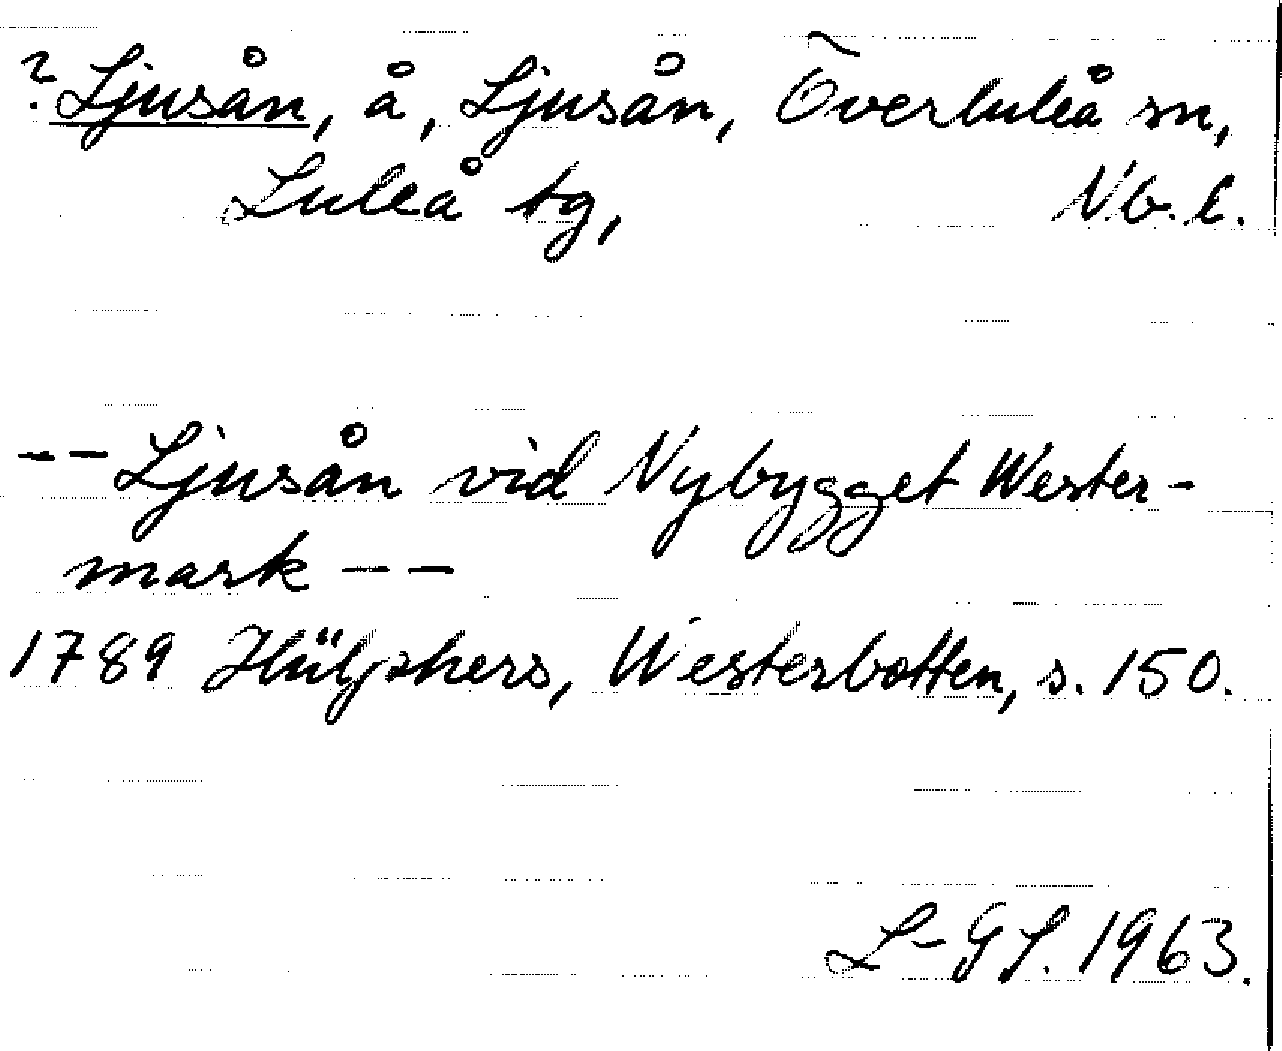 ? Ljusån, å, Ljusån, Överluleå sn,
Luleå tg, Nb. l.
-- Ljusån vid Nybygget Wester-
mark --
1789 Hülphers, Westerbotten, s. 150.
L-GL. 1963.